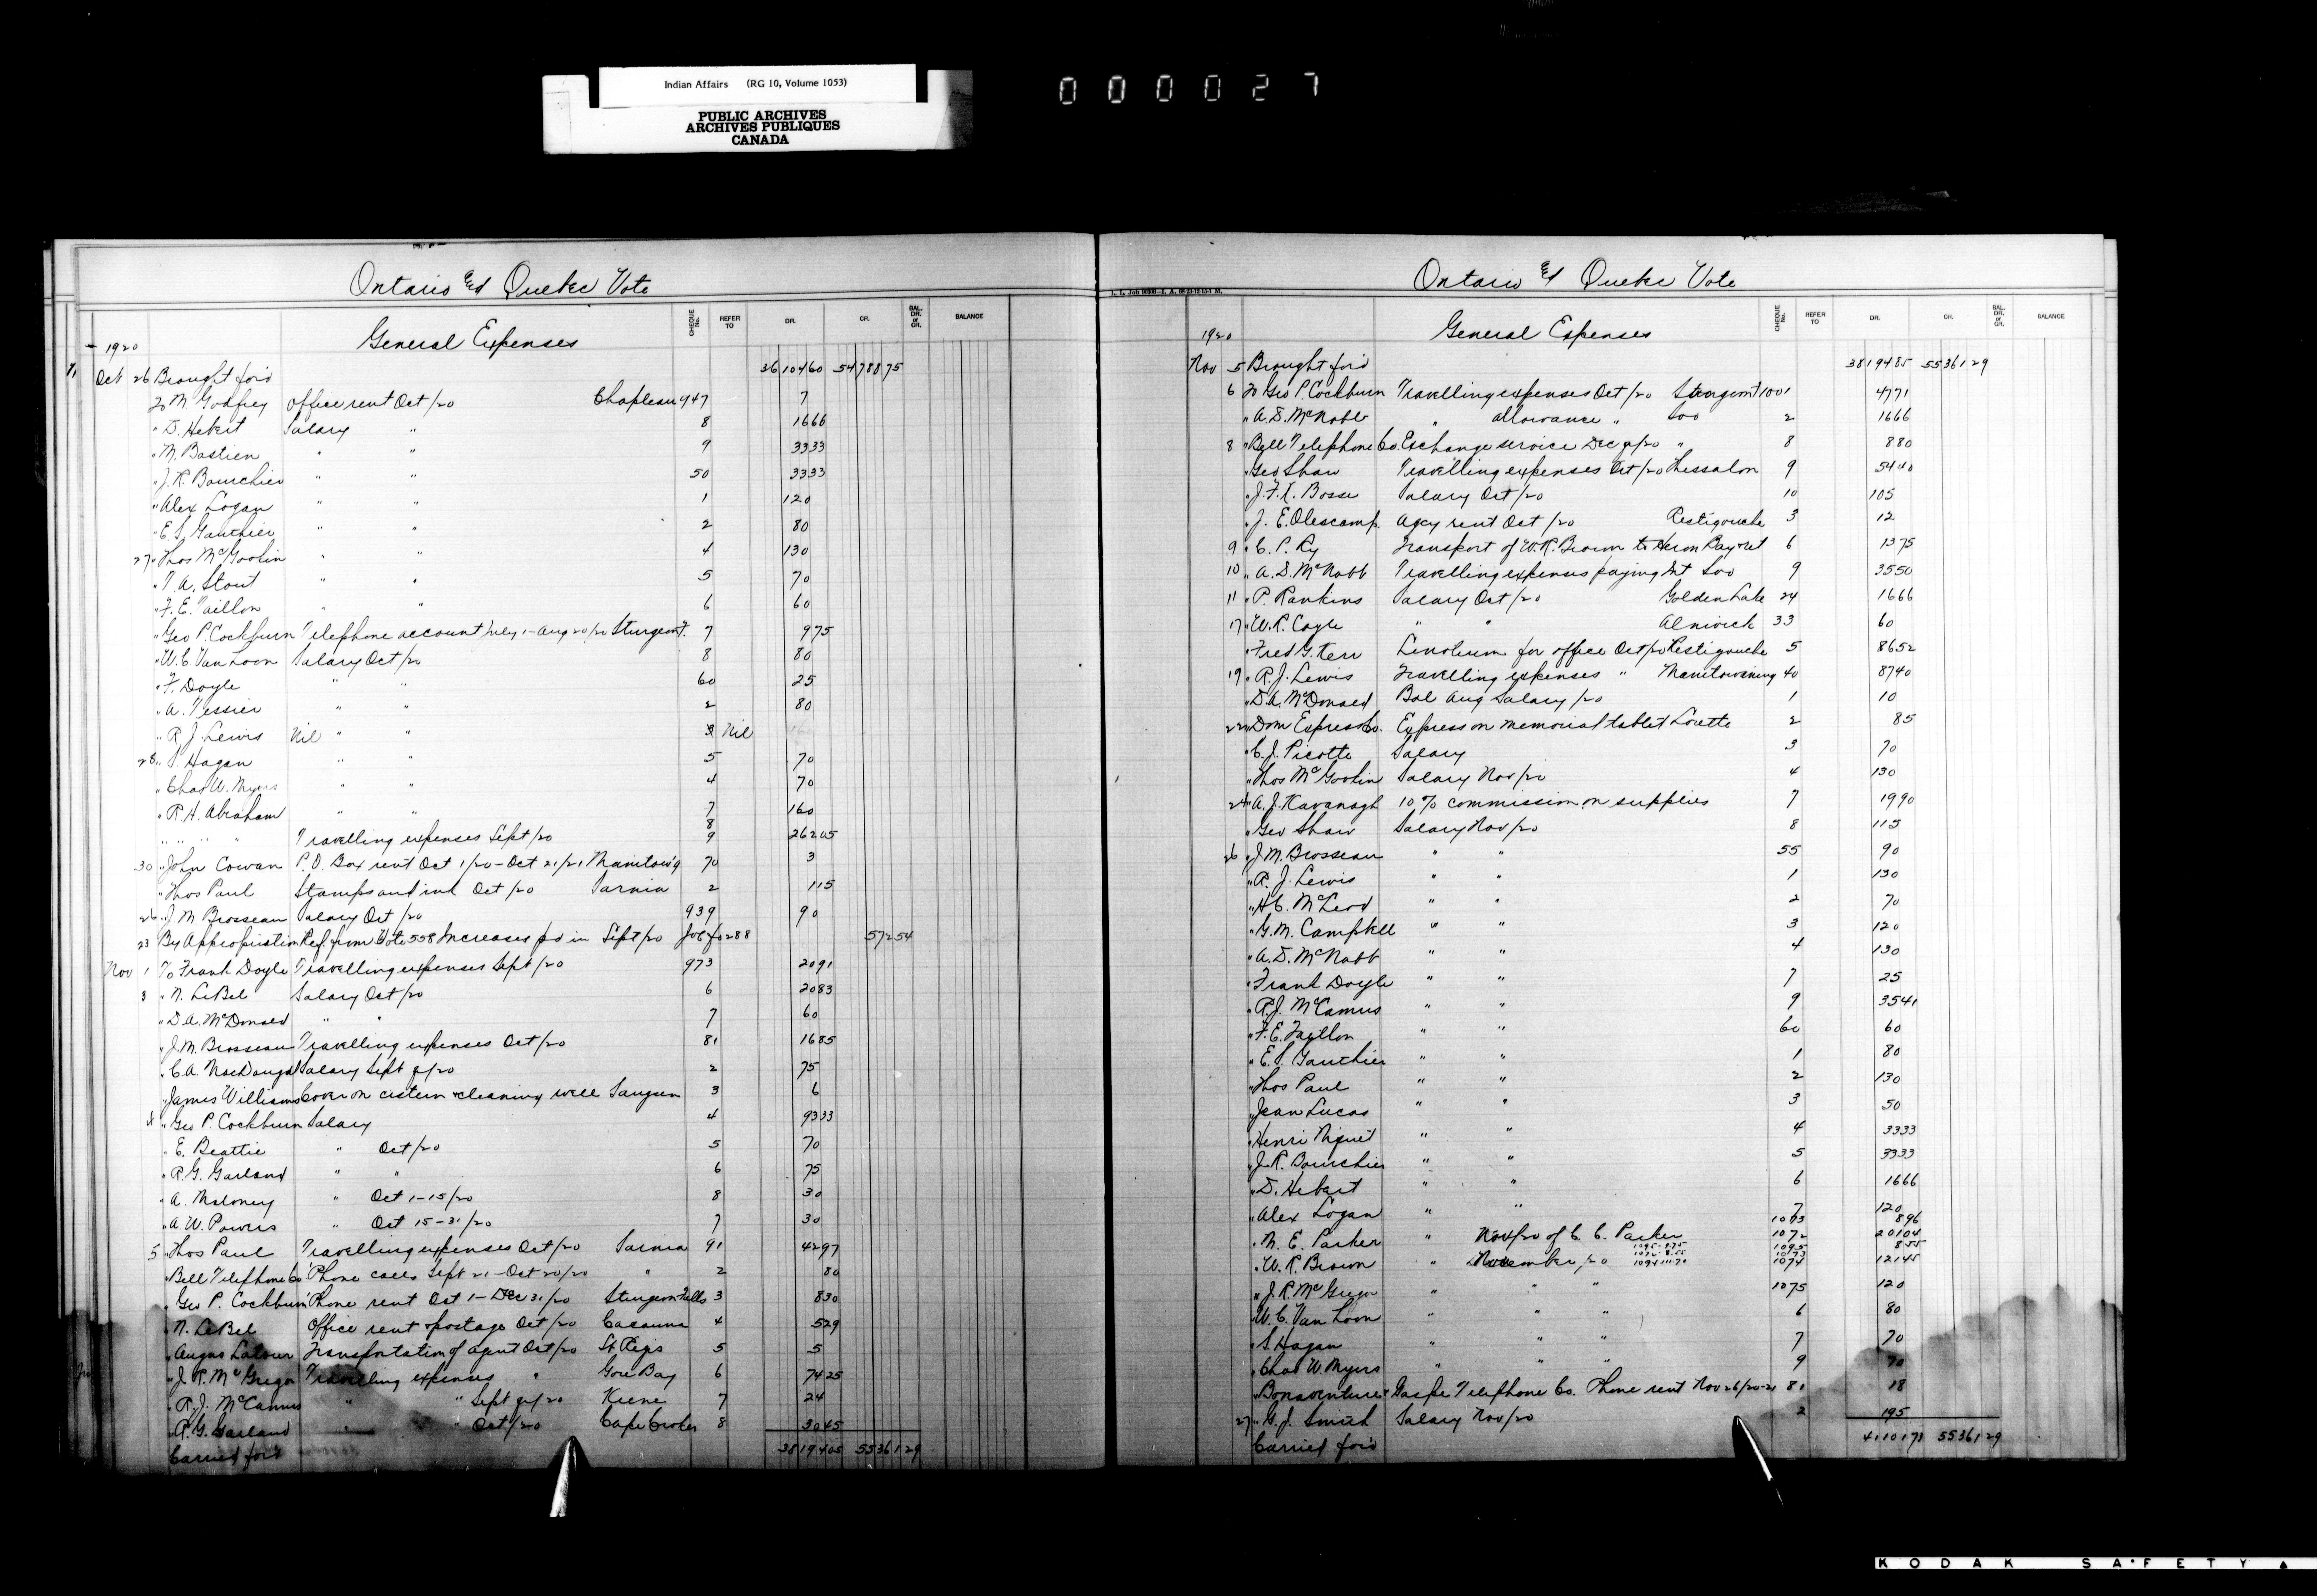 Indian Affairs (RG 10, Volume 1053)
PUBLIC ARCHIVES
ARCHIVES PUBLIQUES
CANADA
000027
Ontario & Quebec Vote
General Expenses
CHEQUE No. REFER TO DR. CR. BAL. DR. or CR. BALANCE
1920
Oct 26 Brought for'd 3610460 5478875
To M. Godfrey Office rent Oct/20 Chapleau 947 7
" D. Hebert Salary " 8 1666
" M. Bastien " " 9 3333
" J. R. Bourchier " " 50 3333
" Alex Logan " " 1 120
" E. S. Gauthier " " 2 80
27 " Thos McGookin " " 4 130
" T. A. Stout " " 5 70
" F. E. Taillon " " 6 60
" Geo P. Cockburn Telephone account July 1-Aug 20/20 Sturgeon F. 7 975
" W. C. Van Loon Salary Oct/20 8 80
" F. Doyle " " 60 25
" A. Tessier " " 2 80
" R. J. Lewis Nil " " 3 Nil
28 " S. Hagan " " 5 70
" Chas W. Myers " " 4 70
" R. H. Abraham " " 7 160
8
" " " Travelling expenses Sept/20 9 26205
30 " John Cowan P.O. Box rent Oct 1/20-Oct 21/21 Manitow'g 70 3
" Thos Paul Stamps and ink Oct/20 Sarnia 2 115
26 " J. M. Brosseau Salary Oct/20 939 90
23 By Appropriation Ref. from Vote 558 Increases pd in Sept/20 288 57254
Nov 1 To Frank Doyle Travelling expenses Sept/20 973 2091
3 " N. LeBel Salary Oct/20 6 2083
" D. A. McDonald " " 7 60
" J. M. Brosseau Travelling expenses Oct/20 81 1685
" C. A. MacDougal Salary Sept qr/20 2 75
" James Williams Cover on cistern & cleaning well Saugeen 3 6
4 " Geo P. Cockburn Salary 4 9333
" E. Beattie " Oct/20 5 70
" R. G. Garland " " 6 75
" A. Maloney " Oct 1-15/20 8 30
" A. W. Powers " Oct 15-31/20 7 30
5 " Thos Paul Travelling expenses Oct/20 Sarnia 91 4297
" Bell Telephone Co Phone calls Sept 21-Oct 20/20 " 2 80
" Geo P. Cockburn Phone rent Oct 1-Dec 31/20 Sturgeon Falls 3 830
" N. LeBel Office rent & postage Oct/20 Cacouna 4 529
" Angus Latour Transportation of agent Oct/20 St Regis 5 5
" J. R. McGregor Travelling expenses " Gore Bay 6 7425
" R. J. McCamus " " Sept qr/20 Keene 7 24
" R. G. Garland " Oct/20 Cape Croker 8 3045
Carried for'd 3819485 5536129
Ontario & Quebec Vote
General Expenses
CHEQUE No. REFER TO DR. CR. BAL. DR. or CR. BALANCE
1920
Nov 5 Brought for'd 3819485 5536129
6 To Geo P. Cockburn Travelling expenses Oct/20 Sturgeon F 1001 4771
" A. D. McNabb " allowance " Soo 2 1666
8 " Bell Telephone Co. Exchange service Dec qr/20 " 8 880
" Geo Shaw Travelling expenses Oct/20 Thessalon 9 5440
" J. F. X. Bosse Salary Oct/20 10 105
" J. E. Olescamp. Agcy rent Oct/20 Restigouche 3 12
9 " C. P. Ry Transport of W. R. Brown to Heron Bay & ret 6 1375
10 " A. D. McNabb Travelling expenses paying Int Soo 9 3550
11 " P. Rankins Salary Oct/20 Golden Lake 24 1666
17 " W. R. Coyle " " Alnwick 33 60
" Fred G. Kerr Linoleum for office Oct/20 Restigouche 5 8652
19 " R. J. Lewis Travelling expenses " Manitowaning 40 8740
" D. A. McDonald Bal Aug Salary/20 1 10
22 " Dom Express Co. Express on memorial tablet Lorette 2 85
" C. J. Picotte Salary 3 70
" Thos McGookin Salary Nov/20 4 130
24 " A. J. Kavanagh 10% commission on supplies 7 1990
" Geo Shaw Salary Nov/20 8 115
26 " J. M. Brosseau " " 55 90
" R. J. Lewis " " 1 130
" H. C. McLeod " " 2 70
" G. M. Campbell " " 3 120
" A. D. McNabb " " 4 130
" Frank Doyle " " 7 25
" R. J. McCamus " " 9 3541
" F. E. Taillon " " 60 60
" E. S. Gauthier " " 1 80
" Thos Paul " " 2 130
" Jean Lucas " " 3 50
" Henri Niquet " " 4 3333
" J. R. Bourchier " " 5 3333
" D. Hebert " " 6 1666
" Alex Logan " " 7 120
1073 896
" M. E. Parker " Nov/20 of C. C. Parker 1072 20104
1095 855
" W. R. Brown " November/20 1074 12145
" J. R. McGregor " " 1075 120
" W. C. Van Loon " " " 6 80
" S. Hagan " " " 7 70
" Chas W. Myers " " " 9 70
" Bonaventure & Gaspe Telephone Co. Phone rent Nov 26/20-21 81 18
27 " G. J. Smith Salary Nov/20 2 195
Carried for'd 4110173 5536129
KODAK SAFETY